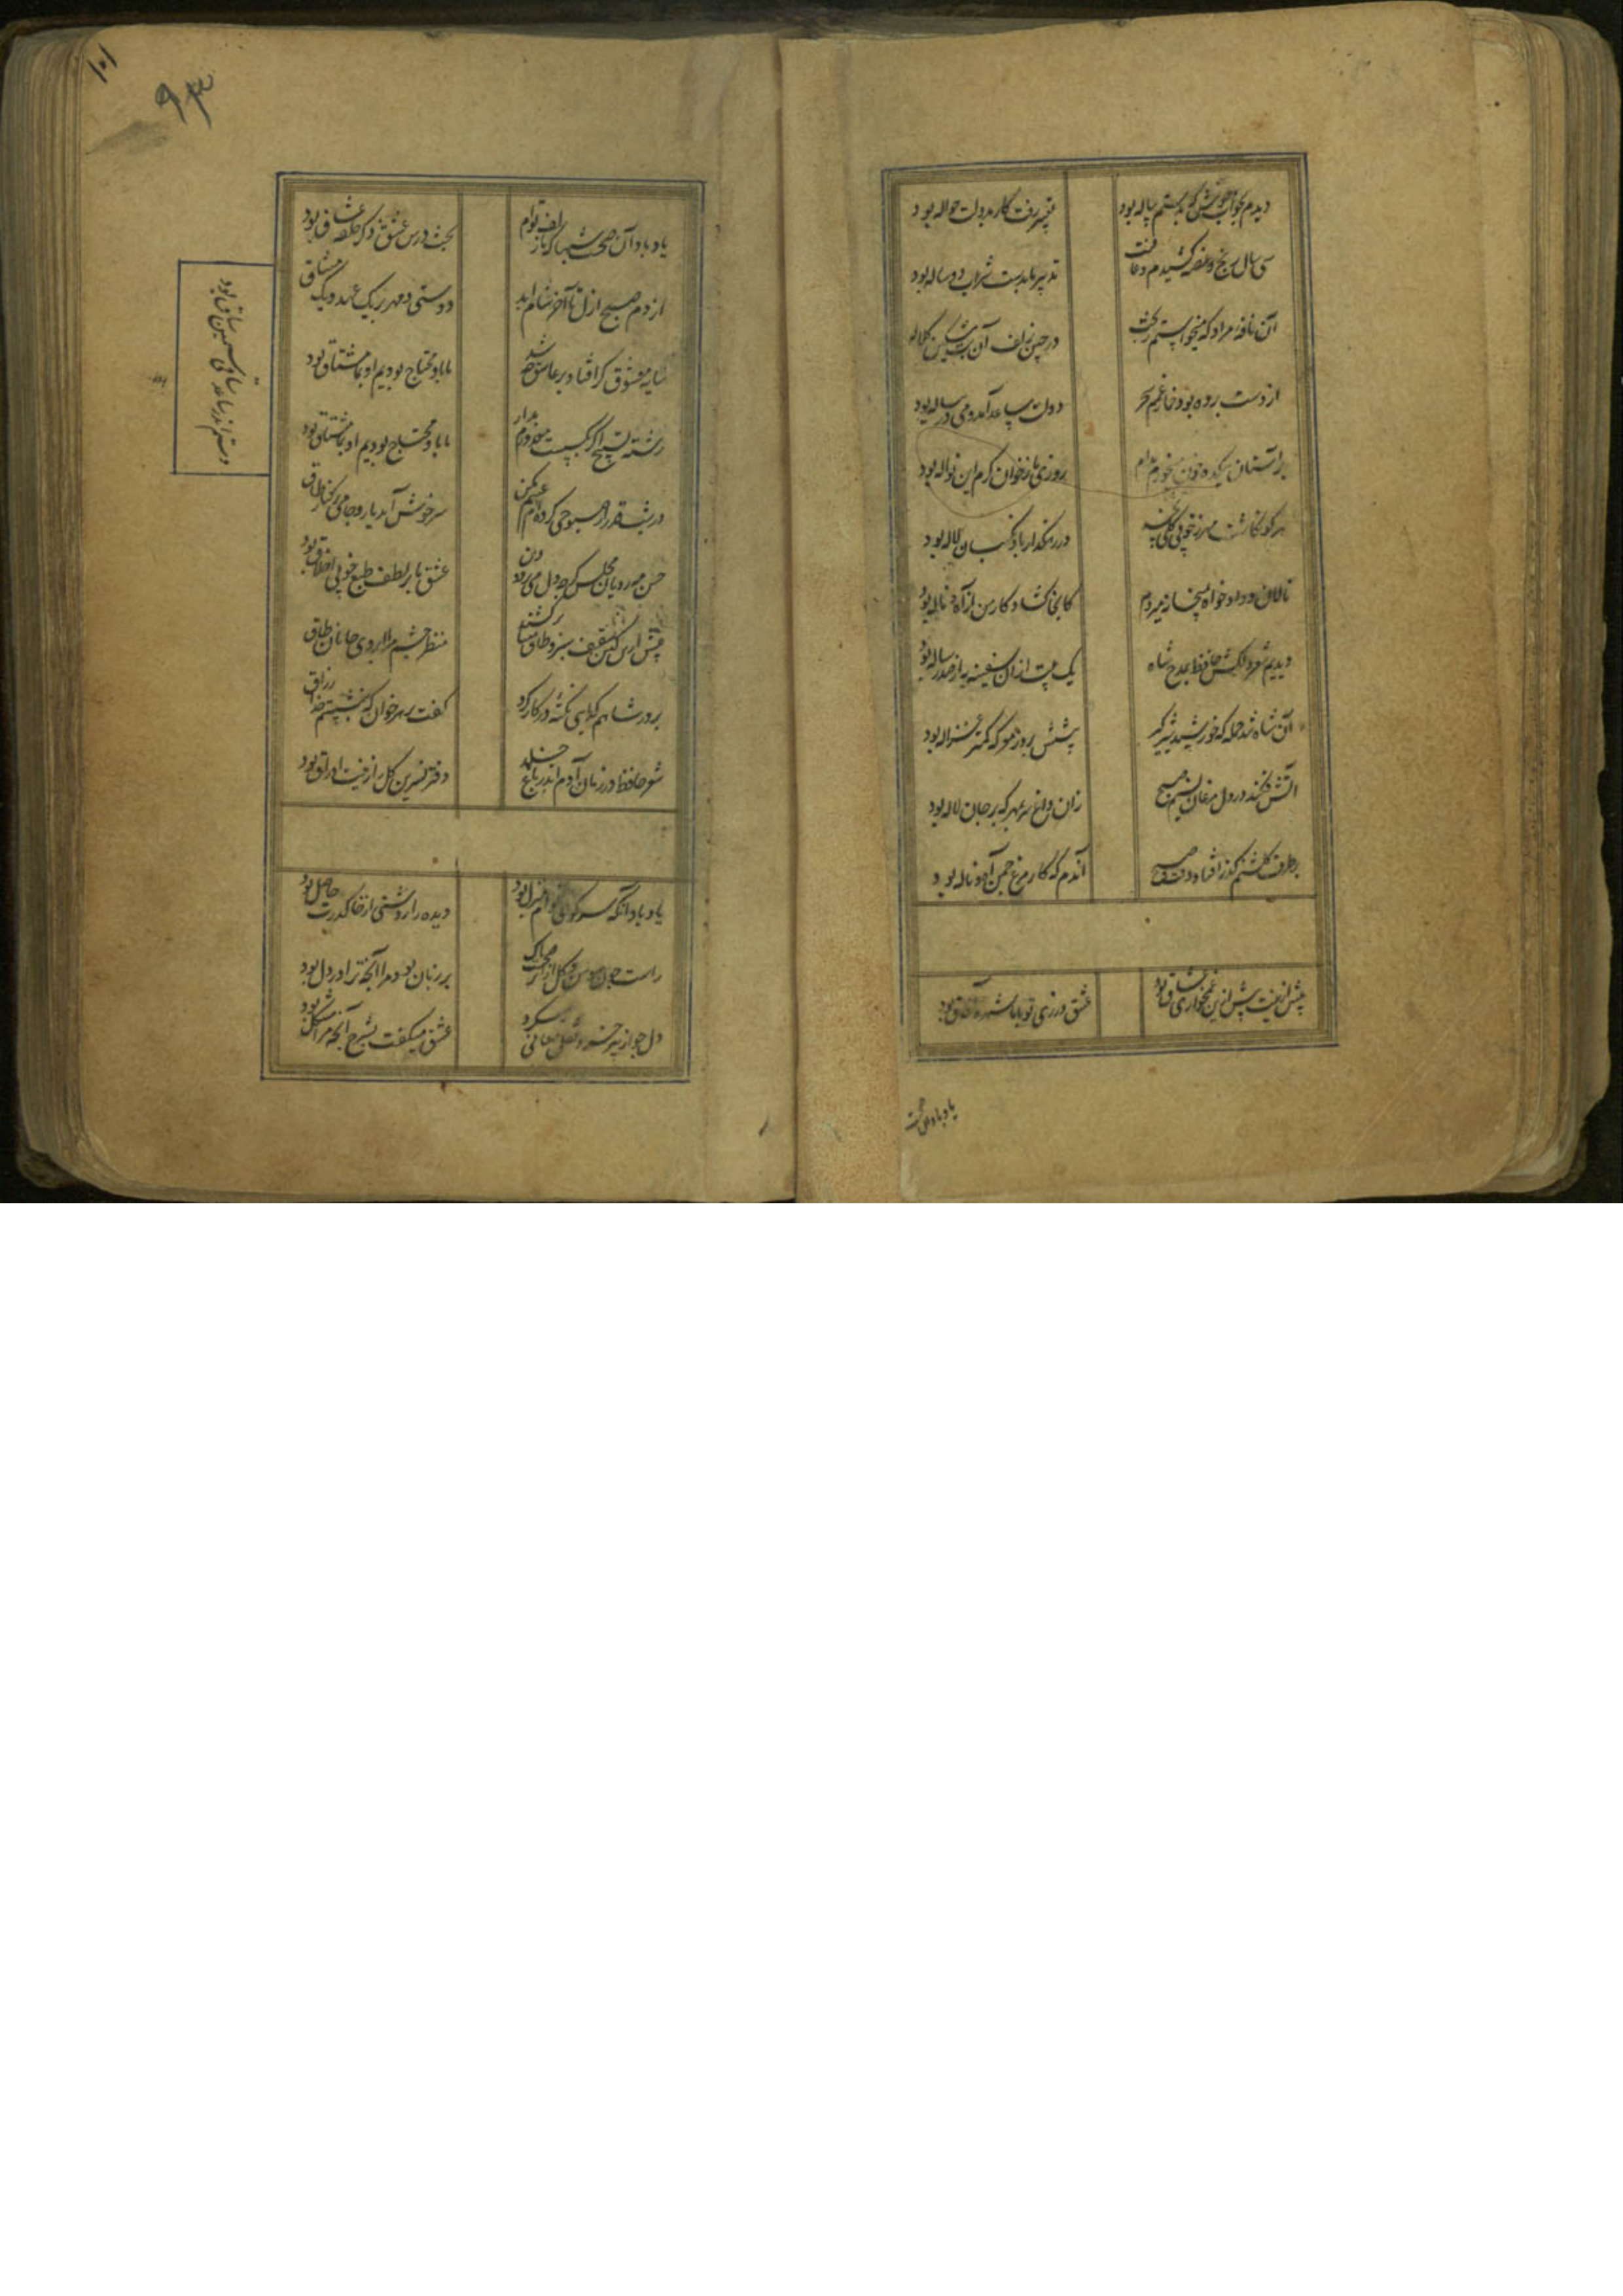 دیدم بخواب خوش که بدستم پیاله بود
تعبیر رفت کار بدولت حواله بود
سی سال رنج و غصه کشیدم و عاقبت
تدبیر ما بدست شراب دو ساله بود
آن نافه مراد که میخواستم ز بخت
در چین زلف آن بت مشکین کلاله
از دست برده بود خمار غمم سحر
دولت مساعد آمد و می در پیاله بود
بر آستان میکده خون میخورم مدام
روزی ما ز خوان کرم این نواله بود
هر کو نکاشت مهر ز خوبی گلی نچید
در رهگذار باد نگهبان لاله بود
نالان و داد خواه بمیخانه میروم
کانجا گشاد کار من از آه و ناله بود
دیدیم شعر دلکش حافظ بمدح شاه
یک بیت ازان سفینه به از صد رساله بود
آن شاه تند حمله که خورشید شیر گیر
پیشش بروز معرکه کمتر غزاله بود
آتش فکند در دل مرغان نسیم صبح
زان داغ سر بمهر که بر جان لاله بود
بر طرف گلشنم گذر افتاد وقت صبح
آندم که کار مرغ چمن آه و ناله بود
پیش ازینت بیش ازین غمخواری عشاق بود
عشق ورزی تو با ما شهره آفاق بود
یاد باد آن صحبت
۱۰۱
۹۳
یاد باد آن صحبت شبها که باز زلف توام
بحث درس عشق و ذکر حلقه عشاق بود
از دم صبح ازل تا آخر شام ابد
دوستی و مهر بر یک عهد و یک میثاق
سایه معشوق گر افتاد بر عاشق چه شد
ما باو محتاج بودیم او بما مشتاق بود
رشته تسبیح اگر بگسست معذورم بدار
ما باو محتاج بودیم او بما مشتاق بود
دستم اندر ساعد ساقی سیمین ساق بود
در شب قدر ار صبوحی کرده‌ام عیبم مکن
سر خوش آمد یار و جامی بر کنار طاق
حسن مه رویان مجلس گرچه دل می برد و دین
عشق ما بر لطف طبع و خوبی اخلاق بود
پیش ازین کین سقف سبز و طاق مینا بر کشند
منظر چشم مرا ابروی جانان طاق
بر در شاهم گدایی نکته در کار کرد
گفت بر هر خوان که بنشستم خدا رزاق
شعر حافظ در زمان آدم اندر باغ خلد
دفتر نسرین و گل را زینت اوراق بود
یاد باد آنکه سر کوی توام منزل بود
دیده را روشنی از خاک درت حاصل بود
راست چون سوسن و گل از اثر صحبت پاک
بر زبان بود مرا آنچه ترا در دل بود
دل چو از پیر خرد نقل معانی میکرد
عشق میگفت بشرح آنچه مرا مشکل بود